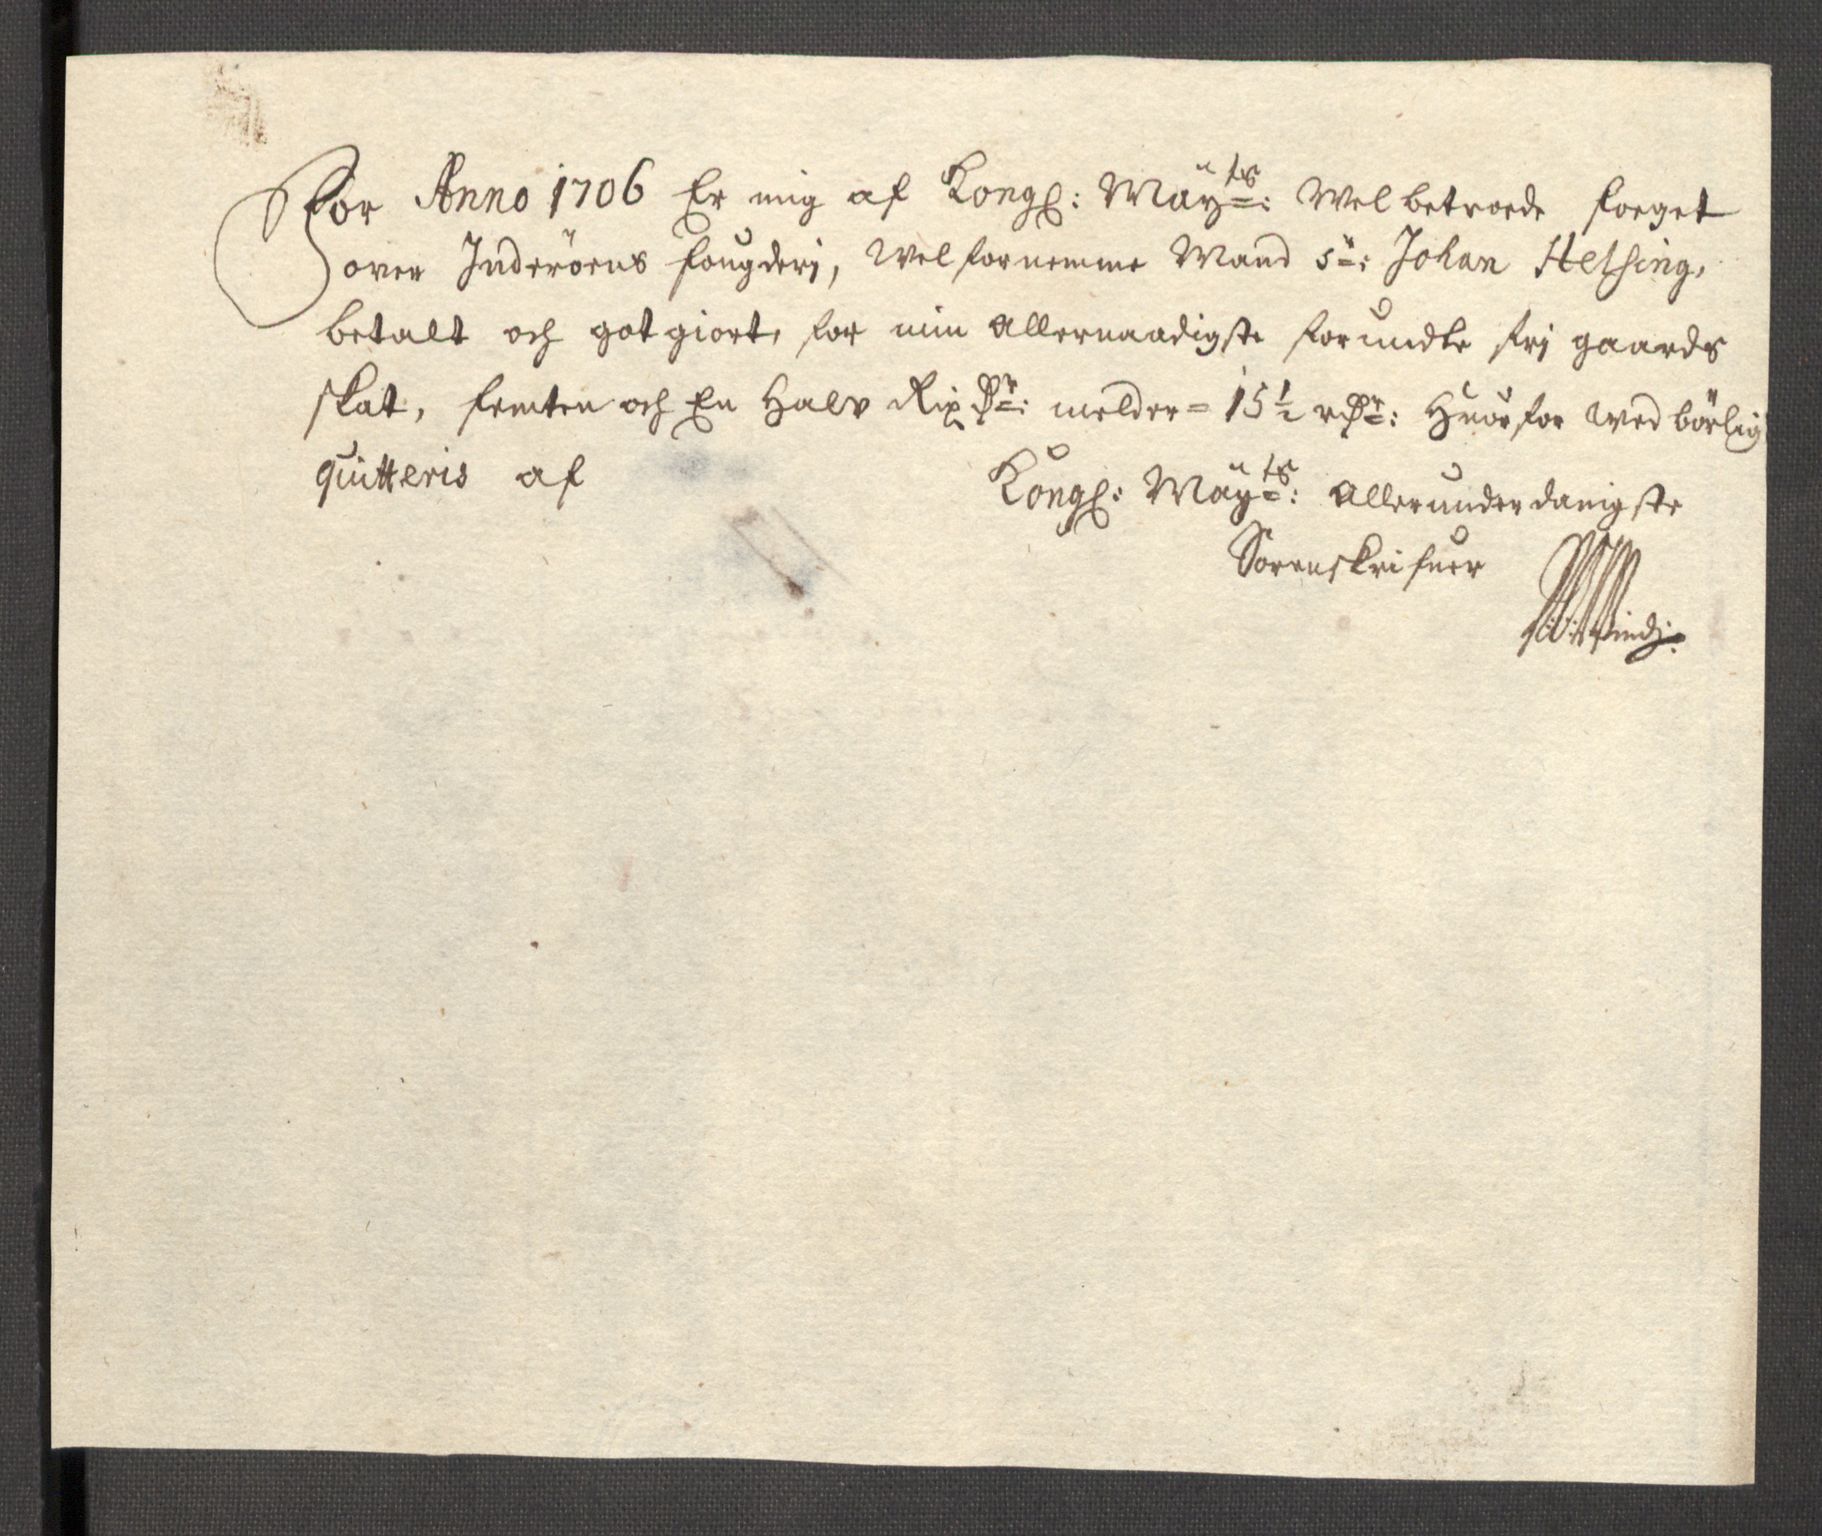 For Anno 1706 Er mig af Kongl: Mäyts: Welbetroede foeget
over Inderöens fougderj, Welfornemme Mand Sr: Johan Helsing,
betalt och got giort, for min Allernaadigste forundte frj gaards
skat, femten och En Halv Rixdr: melder = 15½ rdr: Huorfor Wed börlig
quitteris af
Kongl: Mäyts: Allerunderdanigste
Sorenskrifuer